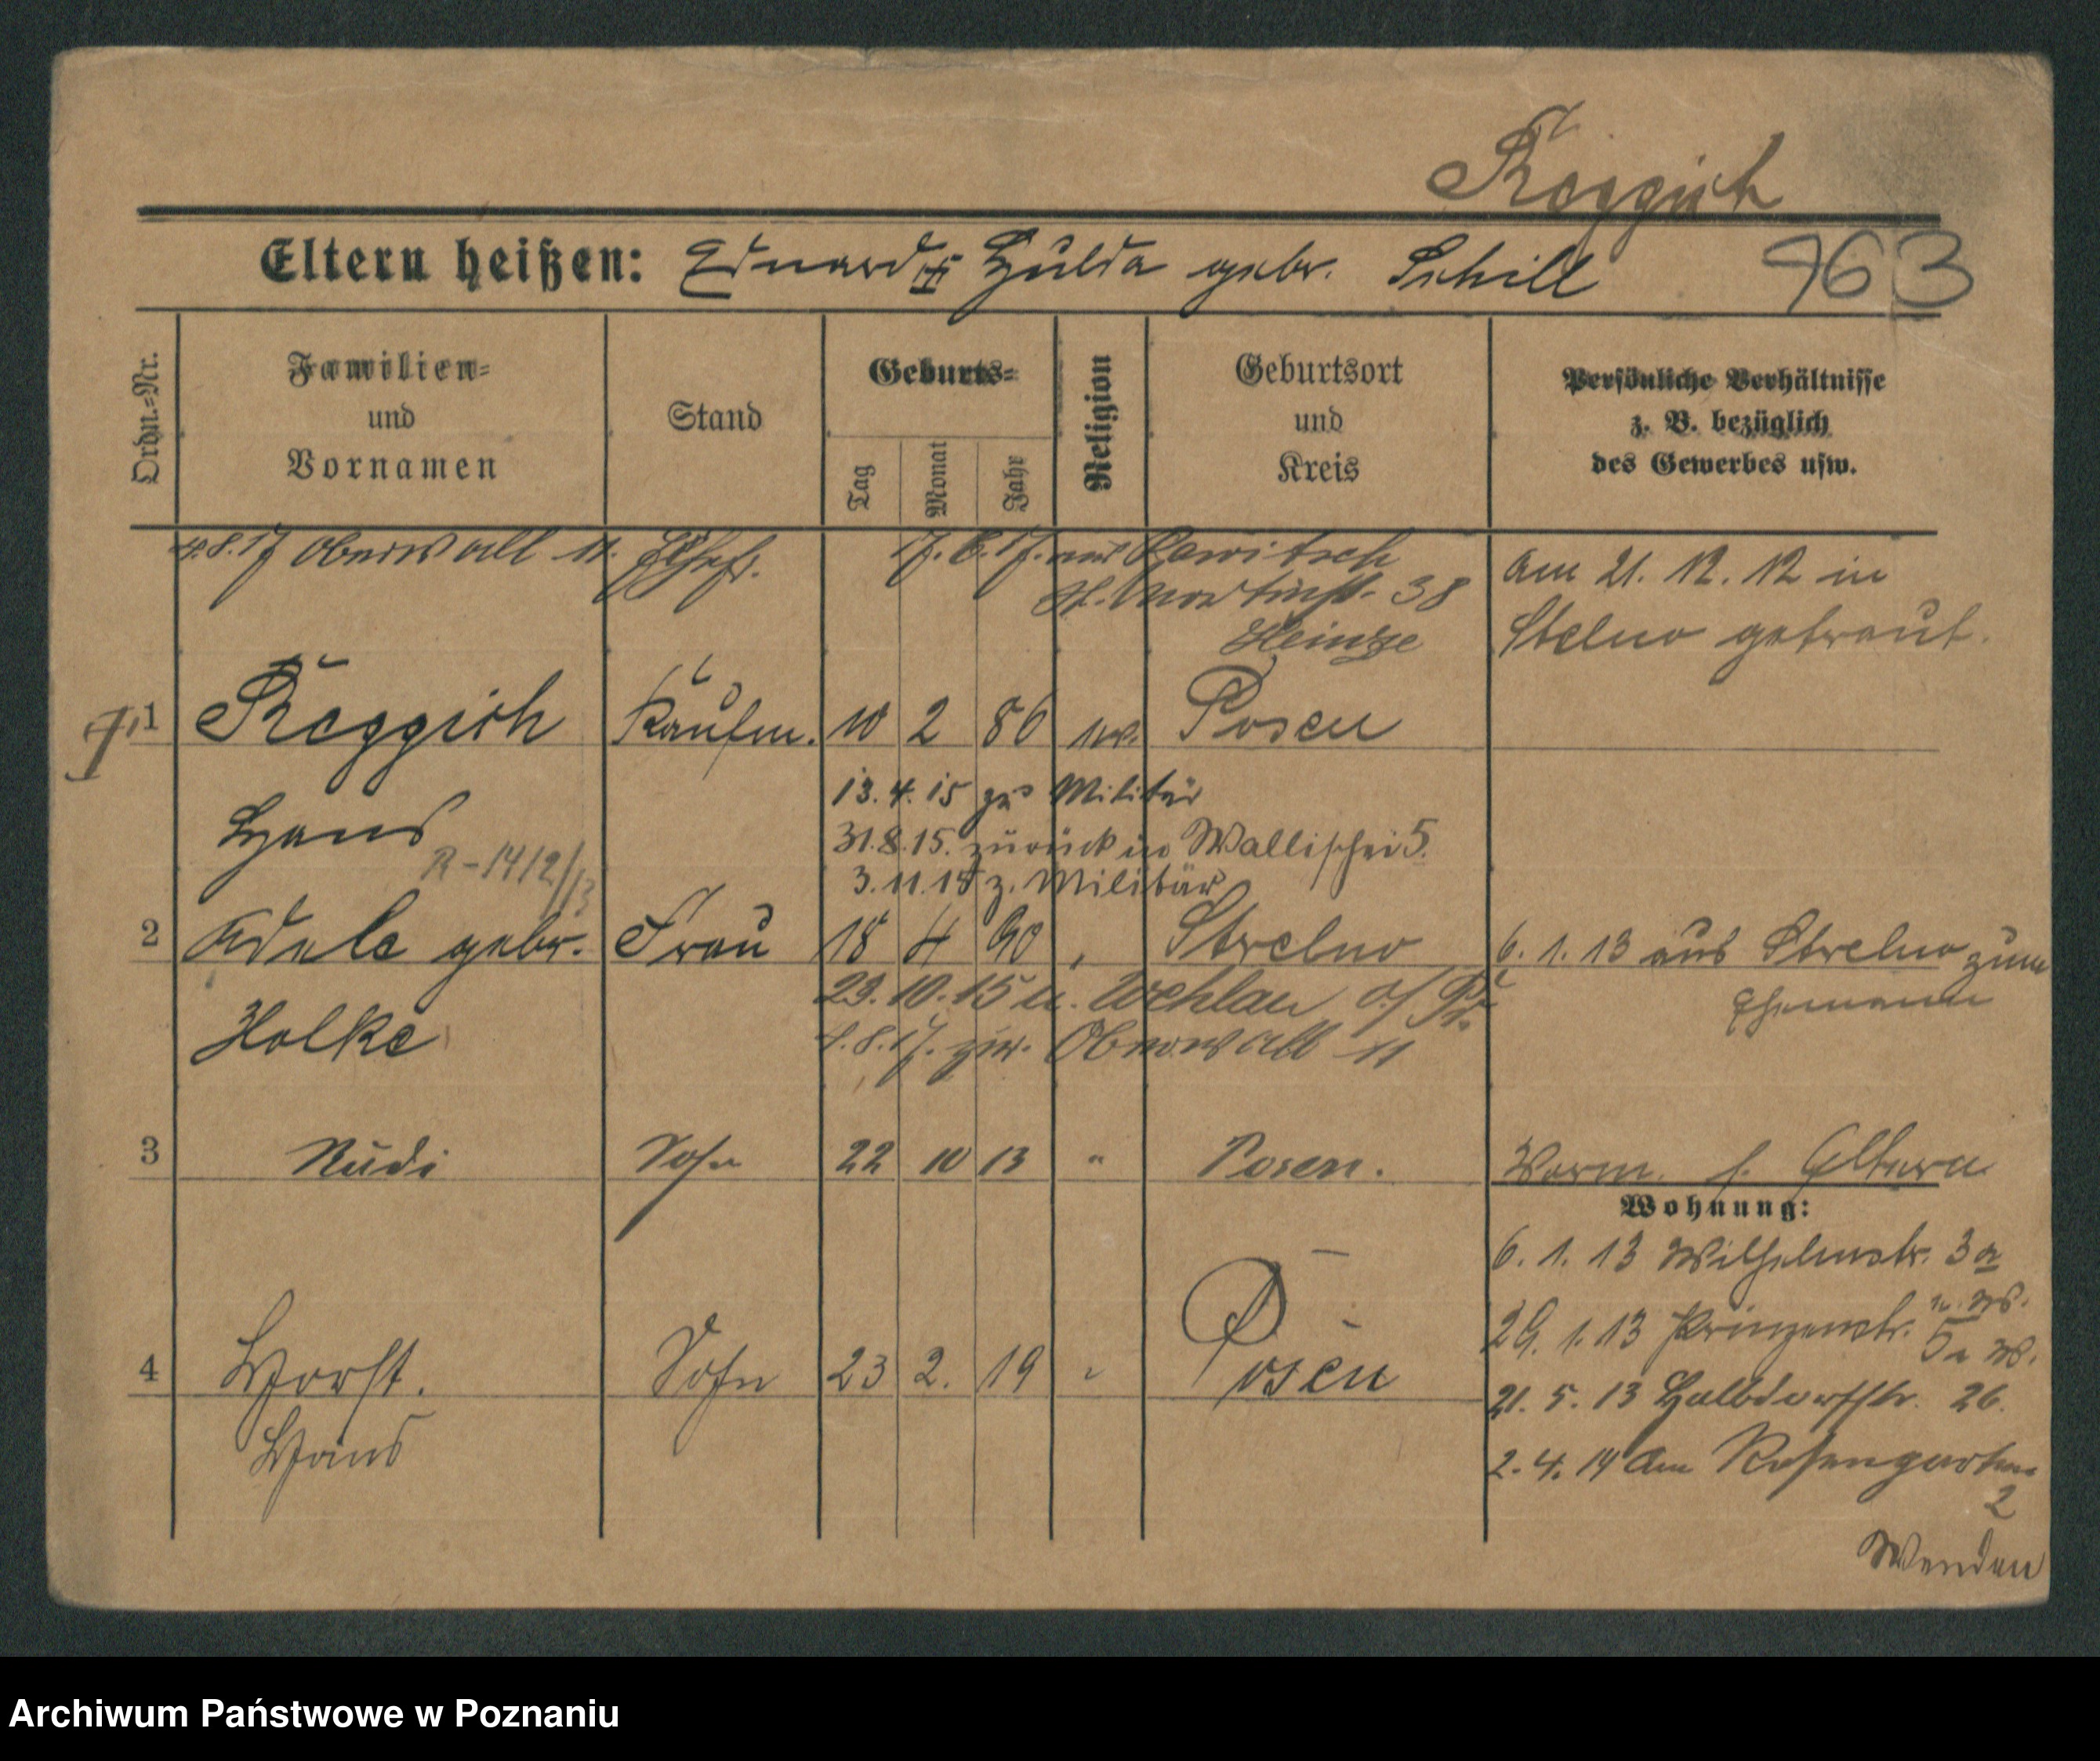 Roggisch
Eltern heißen: Eduard Hulda gebr. Schill 963
Ordn.-Nr.
Familien=
und
Vornamen
Stand
Geburts=
Tag Monat Jahr
Religion
Geburtsort
und
Kreis
Persönliche Verhältnisse
z. B. bezüglich
des Gewerbes usw.
4.8.17 Oberwall 11. Ehefr.
17. 6. 17. aus Rawitsch
St. Martinstr. 38
Heintze
am 21. 12. 12 in
Stelno getraut.
1 Roggisch Kaufm. 10 2 86 Posen
13. 4. 15 zu Militär
Hans
31.8.15. zurück in Wallischei 5.
R-1412/13
3. 11. 15 z. Militär
2 Adele gebr. Frau 18 4 90 Strelno 6. 1. 13 aus Strelno zum
Ehemann
23. 10. 15 n. Wehlau O/Pr.
Holke
4.8.17. zur. Oberwall 11
3 Rudi Sohn 22 10 13 " Posen. Worm. s. Eltern
Wohnung:
6. 1. 13 Wilhelmstr. 3a
29. 1. 13 Prinzenstr. 5a W.
4 Horst. Sohn 23 2. 19 Posen
21. 5. 13 Halbdorfstr. 26.
Hans
2. 4. 14 Am Rosengarten
2
Wenden
Archiwum Państwowe w Poznaniu